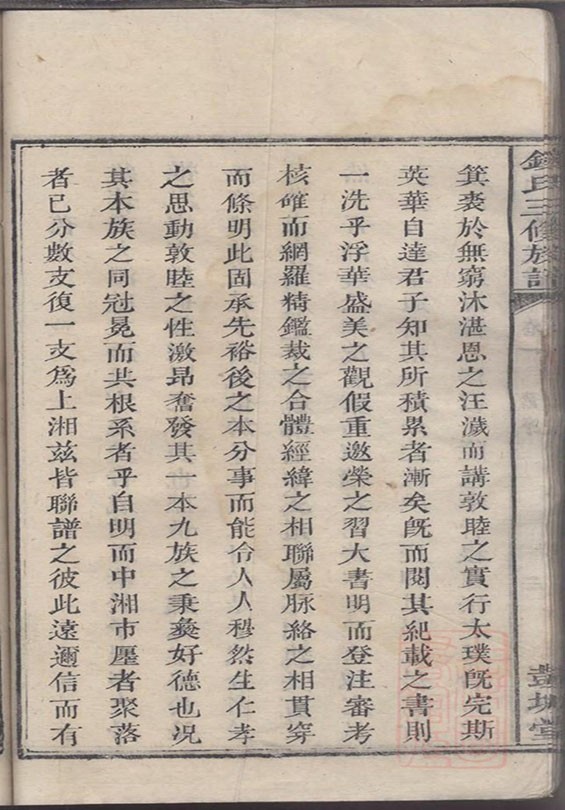 氏三修族譜
彭城堂
箕裘於無窮沐湛恩之汪濊而講敦睦之實行太璞旣完斯
英華自達君子知其所積累者漸矣旣而閱其紀載之書則
一洗乎浮華盛美之觀假重邀榮之習大書明而登注審考
核確而網羅精鑑裁之合體經緯之相聯屬脉絡之相貫穿
而條明此固承先裕後之本分事而能令人人穆然生仁孝
之思動敦睦之性激昂奮發其一本九族之秉彝好德也况
其本族之同冠冕而共根系者乎自明而中湘市壓者聚落
者已分數支復一支爲上湘兹皆聯譜之彼此遠邇信而有